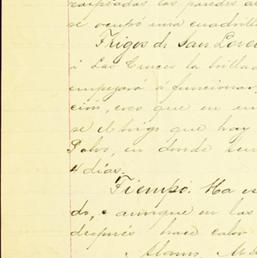 raspadas las paredes de
se ocupó una cuadrill
Trigos de San Loren
á Las Cruces la trillad
empezará á funcionar,
ción, creo que en un
se el trigo que hay
Palvo, en donde ter
4 días.
Tiempo. Ha es
do, aunque en las
después hace calor
Alamos, M